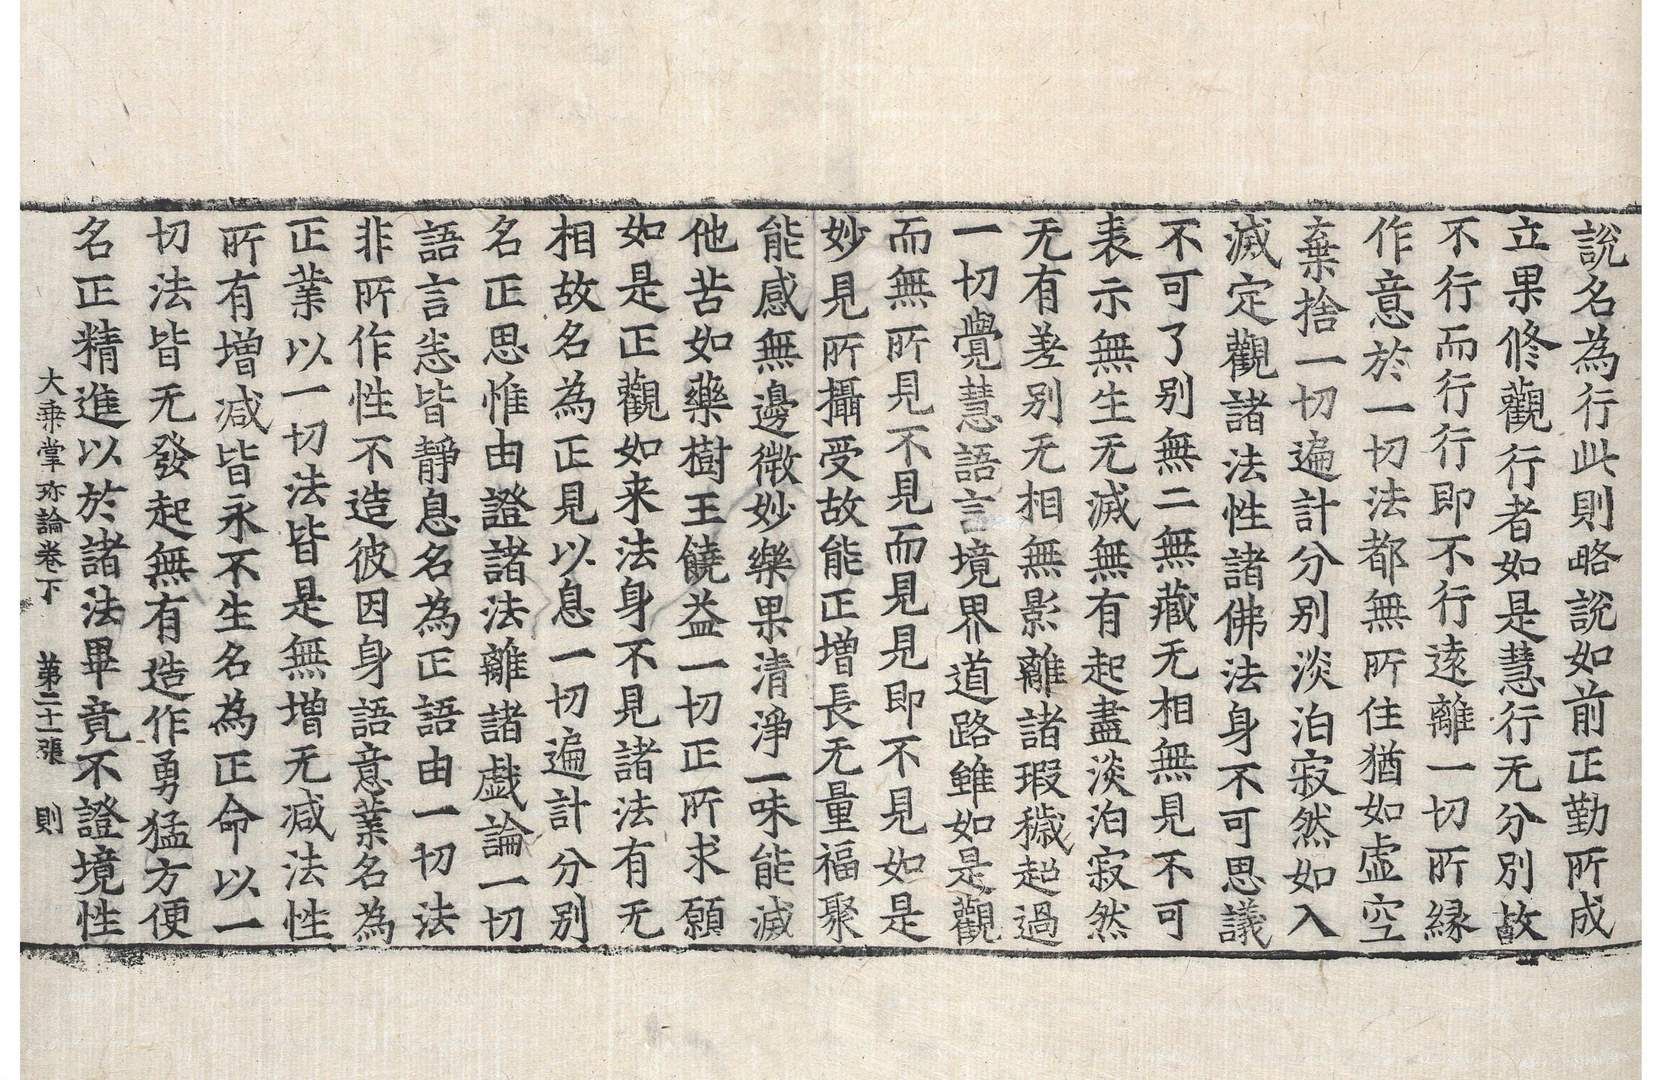 說名為行此則略說如前正勤所成
立果修觀行者如是慧行无分別故
不行而行行即不行遠離一切所緣
作意於一切法都無所住猶如虛空
棄捨一切遍計分別淡泊寂然如入
滅定觀諸法性諸佛法身不可思議
不可了別無二無藏无相無見不可
表示無生无滅無有起盡淡泊寂然
无有差別无相無影離諸瑕穢超過
一切覺慧語言境界道路雖如是觀
而無所見不見而見見即不見如是
妙見所攝受故能正增長无量福聚
能感無邊微妙樂果清淨一味能滅
他苦如藥樹王饒益一切正所求願
如是正觀如来法身不見諸法有无
相故名為正見以息一切遍計分別
名正思惟由證諸法離諸戱論一切
語言悉皆靜息名為正語由一切法
非所作性不造彼因身語意業名為
正業以一切法皆是無增无減法性
所有增減皆永不生名為正命以一
切法皆无發起無有造作勇猛方便
名正精進以於諸法畢竟不證境性
大乗掌珎論卷下　第二十一張　則